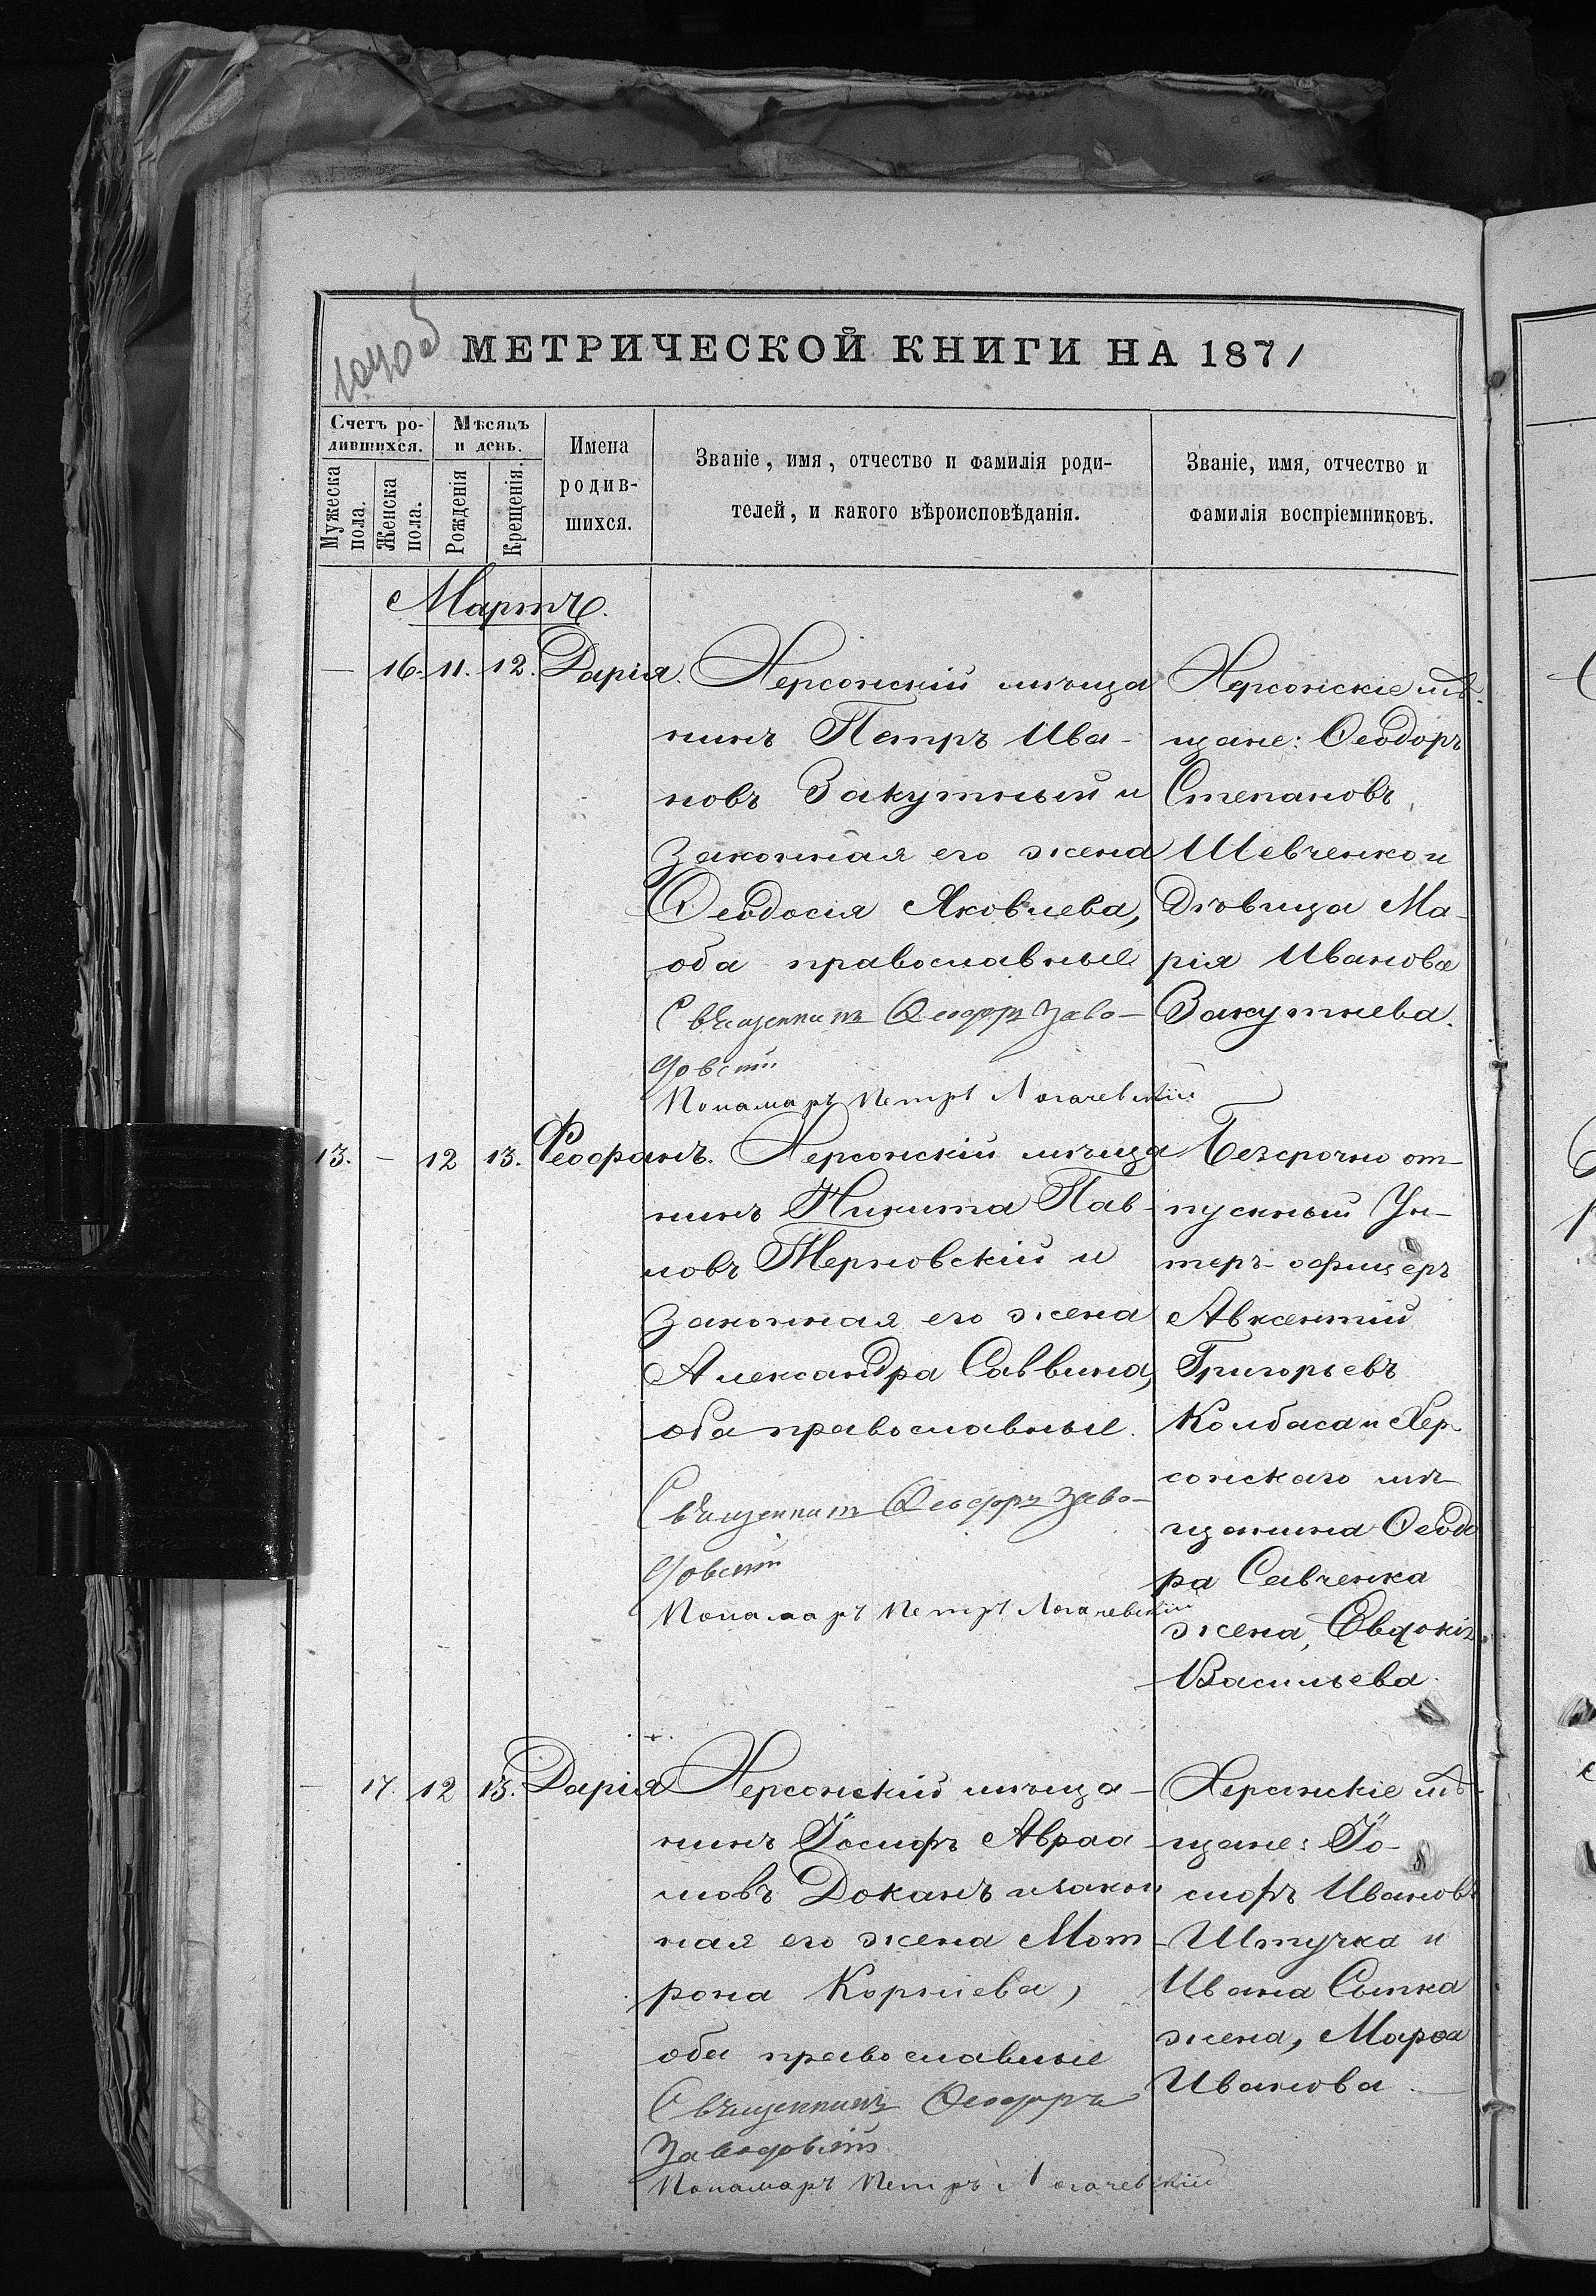 1040об
МЕТРИЧЕСКОЙ КНИГИ НА 1871
Счетъ ро-
дившихся.
Мѣсяцъ
и день.
Мужеска
пола.
Женска
пола.
Рожденія
Крещенія.
Имена
родив-
шихся.
Званіе, имя, отчество и фамилія роди-
телей, и какого вѣроисповѣданія.
Званіе, имя, отчество и
фамилія воспріемниковъ.
Мартъ.
— 16. 11. 12. Дарія.
Херсонскій мѣща
нинъ Петръ Ива-
новъ Закутный и
законная его жена
Ѳеодосія Яковлева,
оба православные
Священникъ Ѳеодоръ Заво-
довскій
Понамарь Петръ Логачевскій
Херсонскіе мѣ-
щане: Ѳеодоръ
Степановъ
Шевченко и
дѣвица Ма-
рія Иванова
Закутнева.
13. — 12 13. Феофанъ.
Херсонскій мѣща
нинъ Никита Пав-
ловъ Терновскій и
законная его жена
Александра Саввина,
оба православные.
Священникъ Ѳеодоръ Заво-
довскій
Понамарь Петръ Логачевскій
Безсрочно от-
пускный Ун-
теръ-офицеръ
Авксентій
Григорьевъ
Колбаса и Хер-
сонскаго мѣ-
щанина Ѳеодо
ра Савченка
жена, Евдокія
Васильева.
— 17. 12 13. Дарія
Херсонскій мѣща-
нинъ Іосифъ Авраа-
мовъ Доканъ и закон
ная его жена Мот-
рона Корніева,
оба православные
Священникъ Ѳеодоръ
Заводовскій
Понамарь Петръ Логачевскій
Херсонскіе мѣ-
щане: Іо-
сифъ Ивановъ
Штучка и
Ивана Сытка
жена, Марѳа
Иванова.